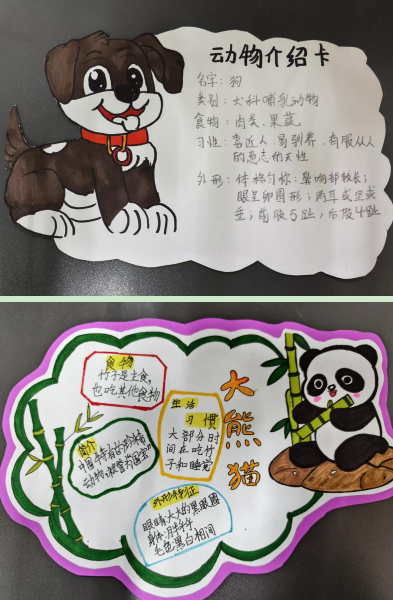 动物介绍卡
名字：狗
类别：犬科哺乳动物
食物：肉类、果蔬
习性：喜近人、易驯养、有服从人
的意志的天性
外形：体格匀称：鼻吻部较长；
眼呈卵圆形；两耳或竖或
垂；前肢5趾，后肢4趾
大熊猫
食物
竹子是主食，
也吃其他食物
生活
习惯
大部分时
间在吃竹
子和睡觉
简介
中国特有的珍稀
动物，被誉为"国宝"
外形特征
眼睛：大大的黑眼圈
身体：胖乎乎
毛色：黑白相间